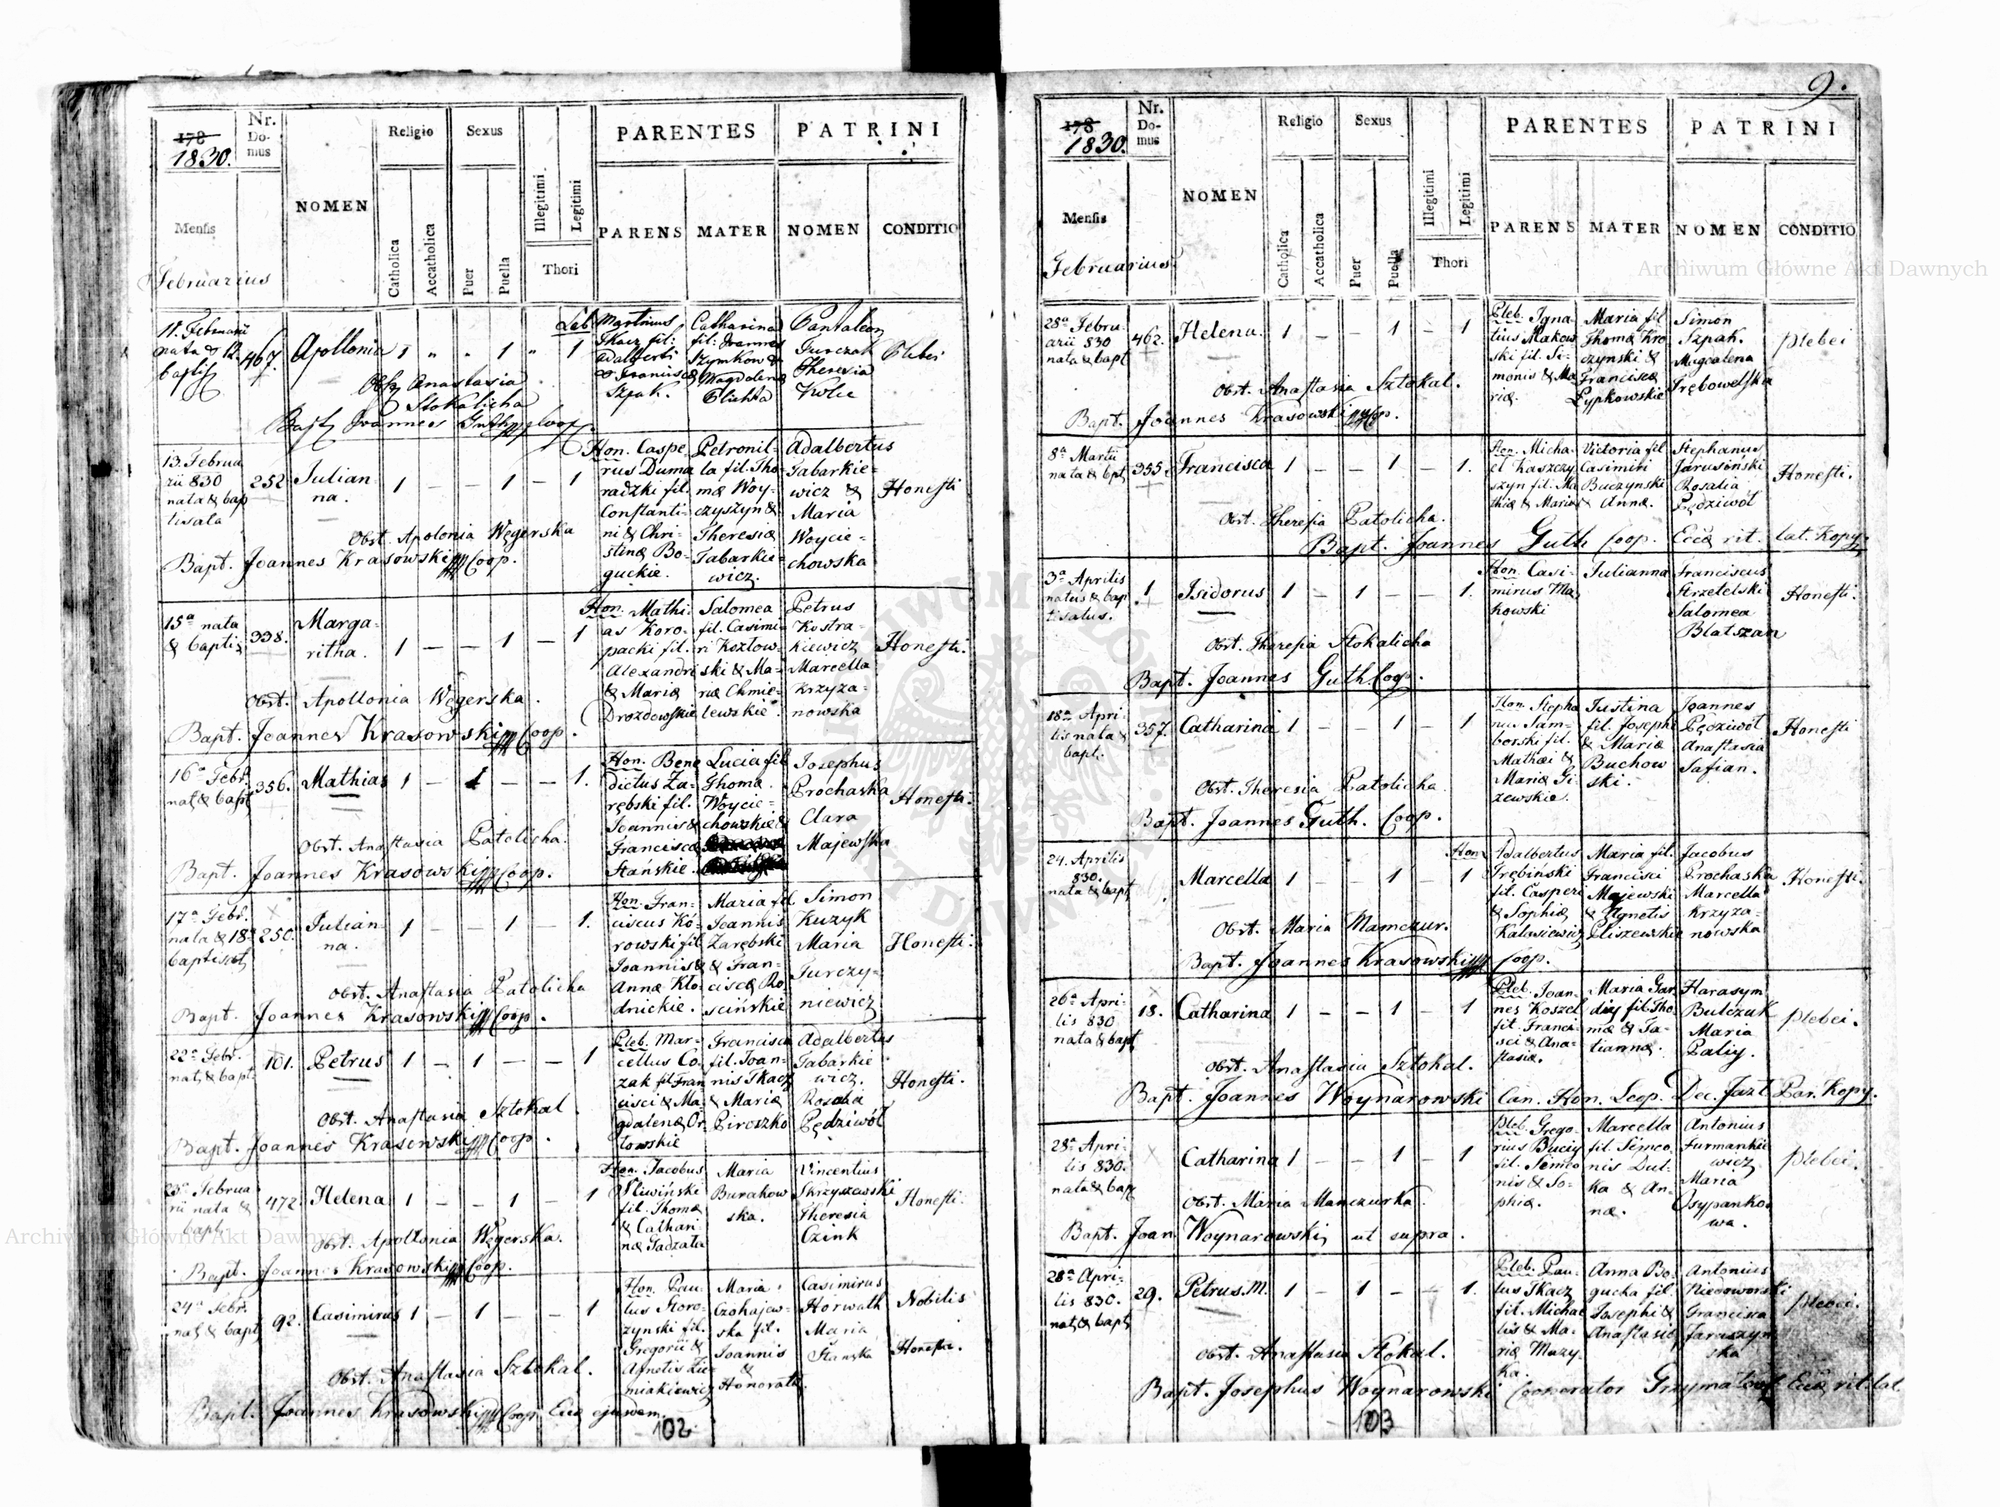 9.
178
1830.
Nr. Domus
NOMEN
Religio
Sexus
Illegitimi
Legitimi
Thori
PARENTES
PATRINI
Mensis
Catholica
Accatholica
Puer
Puella
PARENS
MATER
NOMEN
CONDITIO
Februarius
11. Februarii
nata & 12
467.
Apollonia
1 " " 1 " 1
Martinus
Tkacz fil:
Adalberti
& Francisca
Szpak.
Catharina
fil: Joannes
Szymkow &
Magdalena
Pantaleon
Jurczak
Theresia
Plebei
Obst. Anastasia
Stokalicha
Bapt. Joannes Guth Coop.
13. Februa
rii 830
nata & bap
tisata
252
Julian-
na.
1 – – 1 – 1
Hon. Caspe-
rus Duma
radzki fil.
Constanti-
ni & Chri-
stina Bo-
guckie.
Petronil-
la fil. Tho-
ma Woy-
czyszyn &
Theresia
Tabarkie-
wicz.
Adalbertus
Tabarkie-
wicz &
Maria
Woycie-
chowska
Honesti
Obst. Apolonia Węgerska
Bapt. Joannes Krasowski Coop.
15ª nata
& baptis
338.
Marga-
ritha.
1 – – 1 – 1
Hon. Mathi-
as Koro-
packi fil.
Alexandri
& Maria
Drozdowskie
Salomea
fil. Casimi-
ri Kozłow-
ski & Ma-
ria Chmie-
lewskie.
Petrus
Kostra-
kiewicz
Marcella
Krzyża-
nowska
Honesti.
Obst. Apollonia Węgerska.
Bapt. Joannes Krasowski Coop.
16ª Febr.
nat. & bapt
356.
Mathias
1 – 1 – – 1.
Hon. Bene
dictus Za-
rębski fil.
Joannis &
Francisca
Stańskie.
Lucia fil
Thoma
Woycie-
chowskie &
Josephus
Prochaska
Clara
Majewska
Honesti.
Obst. Anastasia Patolicha.
Bapt. Joannes Krasowski Coop.
17ª Febr.
nata & 18ª
baptisat
250.
Julian-
na.
1 – – 1 – 1.
Hon. Fran-
ciscus Kó-
rowski fil
Joannis &
Anna Kło-
dnickie.
Maria fil
Joannis
Zarębski
& Fran-
cisca Ro-
scińskie
Simon
Kuzyk
Maria
Jurczy-
niewicz
Honesti.
Obst. Anastasia Patolicha
Bapt. Joannes Krasowski Coop.
22ª Febr.
nat. & bapt.
101.
Petrus
1 – 1 – – 1
Pleb. Mar-
cellus Co-
zak fil. Fran
cisci & Ma-
gdalena Or-
łowskie
Francisca
fil. Joan-
nis Tkacz
& Maria
Piroszko
Adalbertus
Tabarkie
wicz.
Rosalia
Pędziwół
Honesti.
Obst. Anastasia Sztokal.
Bapt. Joannes Krasowski Coop.
23ª Februa
rii nata &
bapt.
472.
Helena
1 – – 1 – 1
Hon. Jacobus
Śliwiński
fil. Thoma
& Cathari
na Gadzala
Maria
Burakow
ska.
Vincentius
Skrzyszewski
Theresia
Czink
Honesti.
Obst. Apollonia Węgerska.
Bapt. Joannes Krasowski Coop.
24ª Febr.
nat. & bapt
92.
Casimirus
1 – 1 – – 1
Hon. Pau-
lus Storo-
zynski fil.
Gregorii &
Agnetis Zie-
miakiewicz
Maria
Czohajew-
ska fil.
Joannis
&
Honorata
Casimirus
Horwath
Maria
Stańska
Nobilis
Honesti.
Obst. Anastasia Sztokal.
Bapt. Joannes Krasowski Coop. Eccl. ejusdem.
102
178
1830.
Nr. Domus
NOMEN
Religio
Sexus
Illegitimi
Legitimi
Thori
PARENTES
PATRINI
Mensis
Catholica
Accatholica
Puer
Puella
PARENS
MATER
NOMEN
CONDITIO
Februarius
28ª Febru-
arii 830
nata & bapt
462.
Helena.
1 – – 1 – 1
Pleb. Igna-
tius Makow
ski fil. Si-
monis & Ma
ria.
Maria fil
Thoma Kro
czynski &
Francisca
Łypkowskie
Simon
Szpak.
Magdalena
Trębowelska
Plebei
Obst. Anastasia Sztokal.
Bapt. Joannes Krasowski Coop.
8ª Martii
nata & bpt
355.
Francisca
1 – – 1 – 1.
Hon. Micha-
el Kaszczy
szyn fil. Ma
thia & Maria
Victoria fil
Casimiri
Buczynski
& Anna.
Stephanus
Jarusiński
Rosalia
Pędziwół
Honesti.
Obst. Theresia Patolicha.
Bapt. Joannes Guth Coop. Eccl. rit. lat. Kopy.
3ª Aprilis
natus & bap
tisatus.
1
Isidorus
1 – 1 – – 1.
Hon. Casi-
mirus Ma
kowski
Julianna
Franciscus
Strzelelski
Salomea
Blatszan
Honesti.
Obst. Theresia Stokalicha
Bapt. Joannes Guth. Coop.
18ª Apri-
lis nata &
bapt.
357.
Catharina
1 – – 1 – 1
Hon. Stepha
nus Sam-
borski fil.
Mathei &
Maria Gi-
zewskie.
Justina
fil. Josephi
& Maria
Buchow
ski.
Joannes
Pędziwół
Anastasia
Safian.
Honesti
Obst. Theresia Patolicha.
Bapt. Joannes Guth. Coop.
24. Aprilis
830.
nata & bapt
Marcella
1 – – 1 – 1
Hon. Adalbertus
Trębiński
fil. Casperi
& Sophia
Kalasiewicz
Maria fil.
Francisci
Majewski
& Agnetis
Eliszewskie
Jacobus
Prochaska
Marcella
Krzyża-
nowska
Honesti.
Obst. Maria Mamczur.
Bapt. Joannes Krasowski Coop.
26ª Apri-
lis 830
nata & bapt
18.
Catharina
1 – – 1 – 1
Pleb. Joan-
nes Koszel
fil. Franci-
sci & Ana-
stasia.
Maria Gar
diy fil. Tho-
ma & Ta-
tianna.
Harasym
Bulczuk
Maria
Paliy.
plebei.
Obst. Anastasia Sztokal.
Bapt. Joannes Woynarowski Can. Hon. Leop. Dec. Jazt. Par. Kopy.
28ª Apri-
lis 830.
nata & bap
Catharina
1 – – 1 – 1
Pleb. Grego-
rius Buciy
fil. Semeo
nis & So-
phia.
Marcella
fil. Simeo
nis Dul-
ka & An-
na.
Antonius
Furmankie
wicz
Maria
Osypanko-
wa.
plebei.
Obst. Maria Manczurka.
Bapt. Joan Woynarowski, ut supra.
28ª Apri-
lis 830.
nat. & bapt
29.
Petrus. M.
1 – 1 – – 1.
Pleb. Pau-
lus Tkacz
fil. Michae
lis & Ma-
ria Muzy-
ka.
Anna Bo-
gucka fil.
Josephi &
Anastasia
Antonius
Niedoworsti
Francisca
Jaruszyn
ska
plebei.
Obst. Anastasia Stokal.
Bapt. Josephus Woynarowski Cooperator Grzymałow. Eccl. rit. lat.
103
Archiwum Główne Akt Dawnych
Archiwum Główne Akt Dawnych
ARCHIWUM GŁÓWNE AKT DAWNYCH